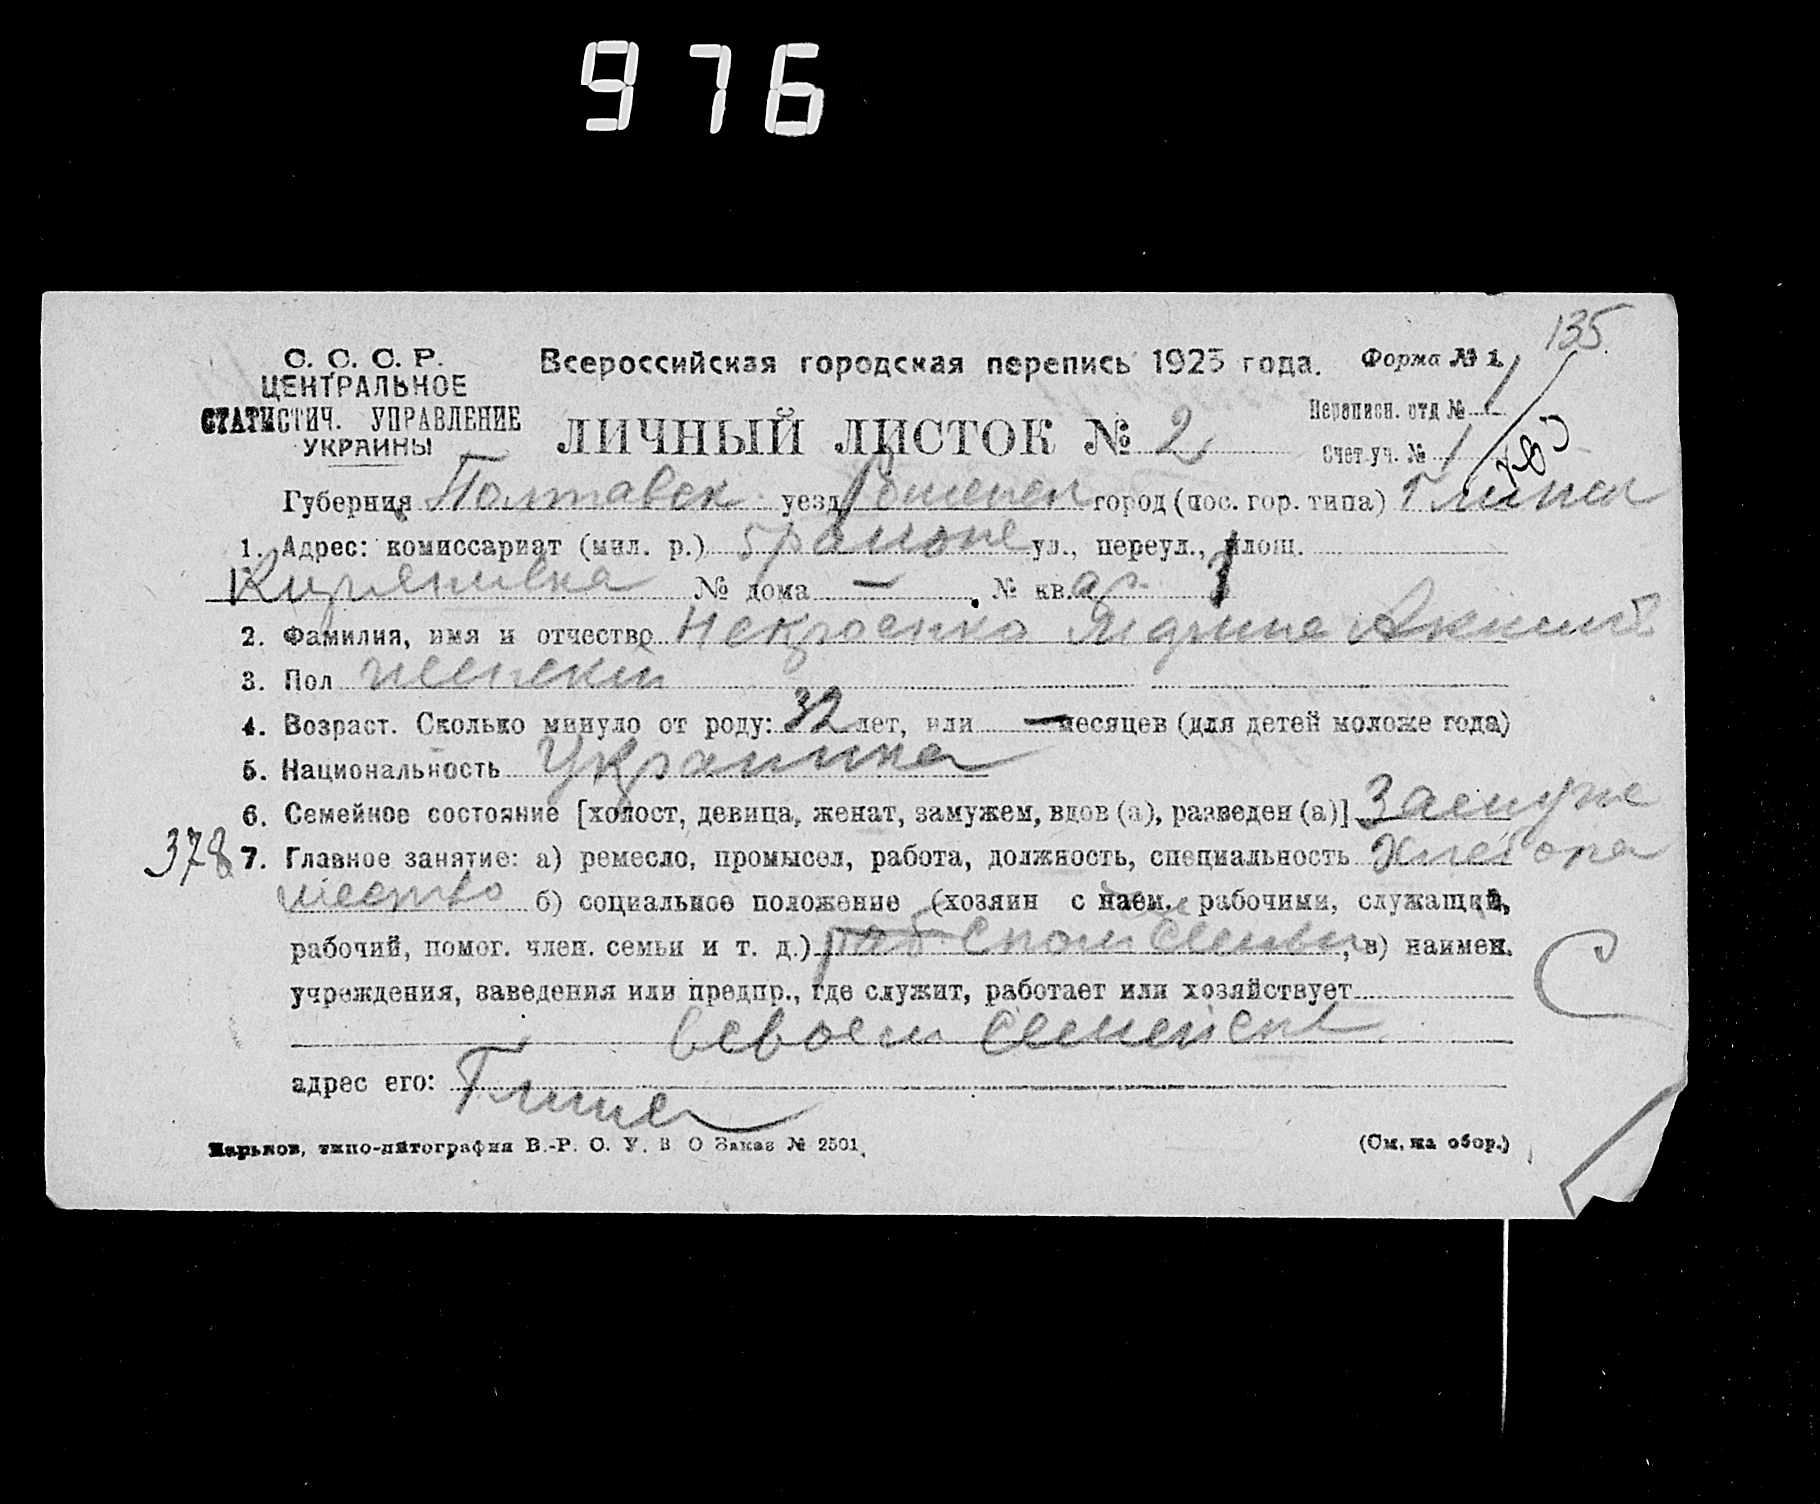 976
135
С. С. С. Р.
ЦЕНТРАЛЬНОЕ
СТАТИСТИЧ. УПРАВЛЕНИЕ
УКРАИНЫ
Всероссийская городская перепись 1923 года. Форма № 1
ЛИЧНЫЙ ЛИСТОК № 2
Переписн. отд № 1
Счет. уч. № 1
Губерния Полтавск уезд Роменск город (пос. гор. типа) Глинск
1. Адрес: комиссариат (мил. р.) ул., переул., площ.
№ дома — № кв.
2. Фамилия, имя и отчество
3. Пол женский
4. Возраст. Сколько минуло от роду: 32 лет, или — месяцев (для детей моложе года)
5. Национальность Украинка
6. Семейное состояние [холост, девица, женат, замужем, вдов (а), разведен (а)] Замужне
378 7. Главное занятие: а) ремесло, промысел, работа, должность, специальность Хлебопа
шество б) социальное положение (хозяин с наем. рабочими, служащий,
рабочий, помог. член. семьи и т. д.) семьи, в) наимен.
учреждения, заведения или предпр., где служит, работает или хозяйствует
в своем
адрес его: Глинск
Харьков, типо-литография В.-Р. О. У. В О Заказ № 2501.
(См. на обор.)